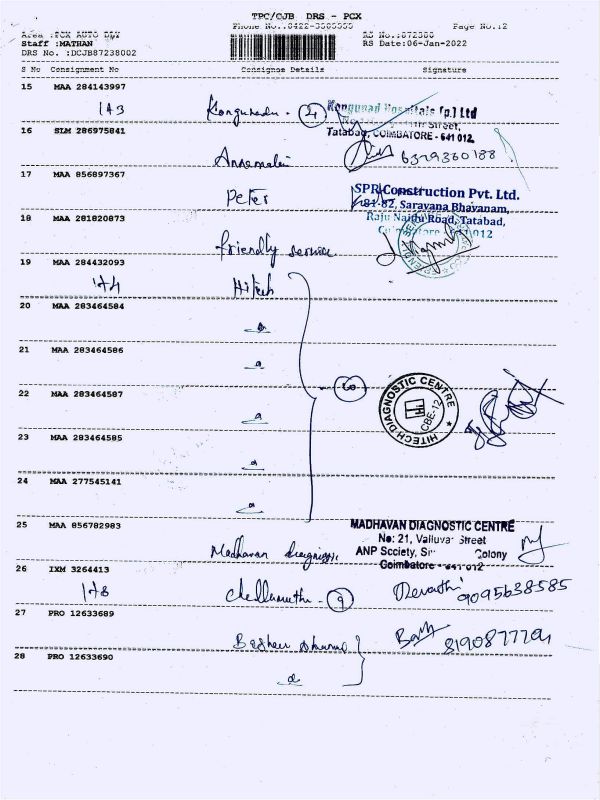 TPC/CJB DRS - PCX
Area :PCX AUTO DLY
Page No.:12
Staff :MATHAN
RS No.:872380
DRS No. :DCJB87238002
RS Date:06-Jan-2022
S No Consignment No Consignee Details Signature
15 MAA 284143997
143 Kongunadu - 4
Kongunad Hospitals (p.) Ltd
Street,
Tatabad, COIMBATORE - 641 012.
16 SLM 286975841
Annamalai 6379360188
17 MAA 856897367
Peter
SPR Construction Pvt. Ltd.
181-82, Saravana Bhavanam,
Raju Naidu Road, Tatabad,
Coimbatore - 641012
18 MAA 281820873
friendly service
19 MAA 284432093
144 Hitech
20 MAA 283464584
21 MAA 283464586
6
HITECH DIAGNOSTIC CENTRE
Hi
CBE-12
22 MAA 283464587
23 MAA 283464585
24 MAA 277545141
25 MAA 856782983
Madhavan
MADHAVAN DIAGNOSTIC CENTRE
No: 21, Valluvar Street
ANP Society, Colony
Coimbatore - 641 012
26 IXM 3264413
148 Chellamuthu - 9 Revathi
9095638585
27 PRO 12633689
8190877204
28 PRO 12633690